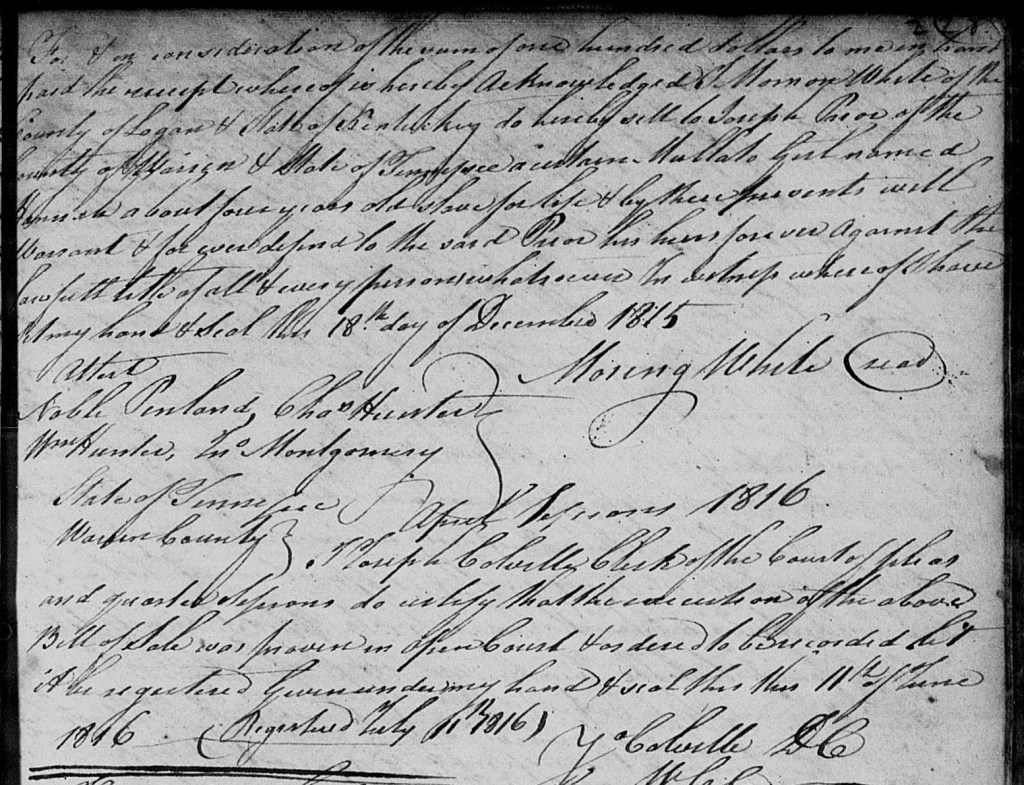 For & in consideration of the sum of one hundred dollars to me in hand
paid the receipt whereof is hereby Acknowledged I White of the
County of Logan & State of Kentuckey do hereby sell to Joseph Prior of the
County of Warren & State of Tennessee a certain Mullato Girl named
about four years old slave for life & by these presents will
Warrant & forever defend to the said Prior his heirs forever Against the
lawfull title of all & every persons whatsoever In witness whereof I have
set my hand & seal this 18th day of December 1815
Attest
Moring White (seal)
Noble Penland, Chas Hunter
Wm Hunter, Montgomery
State of Tennessee
April Sessions 1816
Warren County }
I Joseph Colville Clerk of the Court of pleas
and quarter Sessions do certify that the execution of the above
Bill of Sale was proven in Open Court & ordered to be recorded let
it be registered Given under my hand & seal this this 11th of June
1816 (Registered July 11th 1816)
Jo Colville